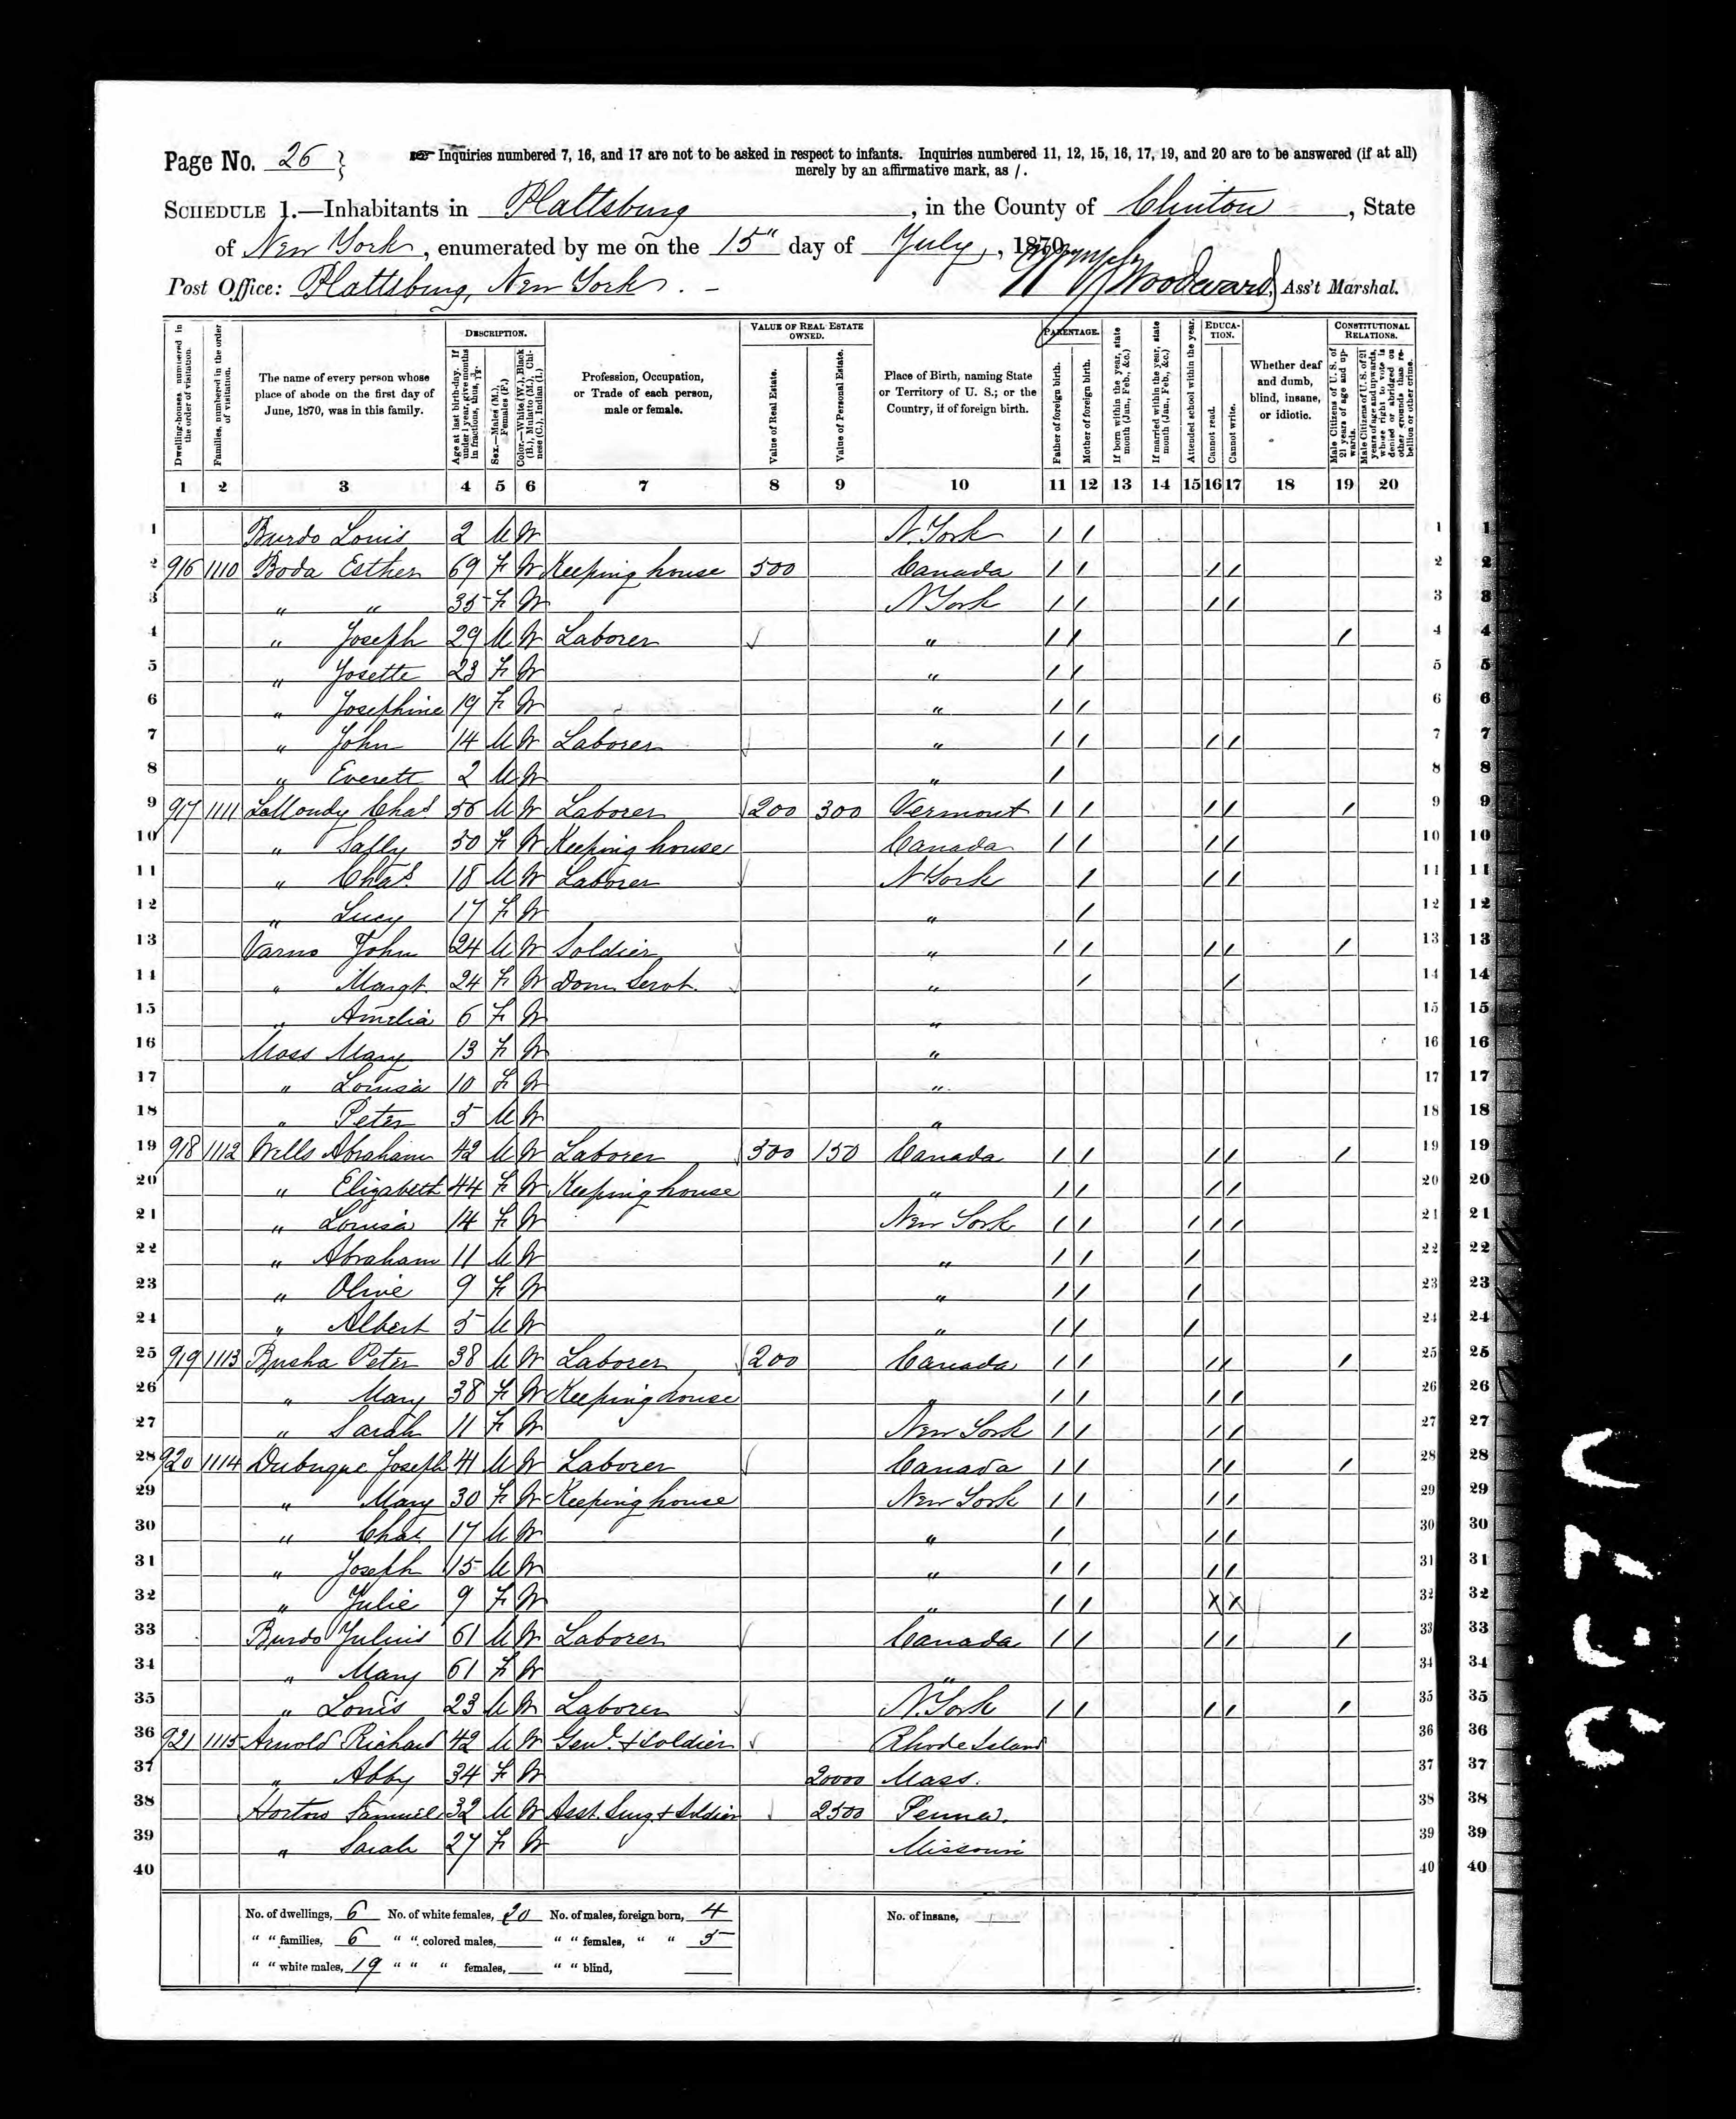 Page No. 26
Inquiries numbered 7, 16, and 17 are not to be asked in respect to infants. Inquiries numbered 11, 12, 15, 16, 17, 19, and 20 are to be answered (if at all)
merely by an affirmative mark, as /.
SCHEDULE 1.—Inhabitants in Plattsburg, in the County of Clinton, State
of New York, enumerated by me on the 15" day of July, 1870.
Post Office: Plattsburg, New York. Woodward, Ass't Marshal.
Dwelling-houses, numbered in the order of visitation.
Families, numbered in the order of visitation.
The name of every person whose place of abode on the first day of June, 1870, was in this family.
DESCRIPTION.
Age at last birth-day. If under 1 year, give months in fractions, thus, 3/12.
Sex.—Males (M.), Females (F.)
Color.—White (W.), Black (B.), Mulatto (M.), Chinese (C.), Indian (I.)
Profession, Occupation, or Trade of each person, male or female.
VALUE OF REAL ESTATE OWNED.
Value of Real Estate.
Value of Personal Estate.
Place of Birth, naming State or Territory of U. S.; or the Country, if of foreign birth.
PARENTAGE.
Father of foreign birth.
Mother of foreign birth.
If born within the year, state month (Jan., Feb., &c.)
If married within the year, state month (Jan., Feb., &c.)
Attended school within the year.
EDUCATION.
Cannot read.
Cannot write.
Whether deaf and dumb, blind, insane, or idiotic.
CONSTITUTIONAL RELATIONS.
Male Citizens of U. S. of 21 years of age and upwards.
Male Citizens of U. S. of 21 years of age and upwards, whose right to vote is denied or abridged on other grounds than rebellion or other crime.
1 2 3 4 5 6 7 8 9 10 11 12 13 14 15 16 17 18 19 20
1 Burdo Louis 2 M W N. York / / 1 1
2 916 1110 Boda Esther 69 F W Keeping house 500 Canada / / / / 2 2
3 " " 35 F W N York / / / / 3 3
4 " Joseph 29 M W Laborer " / / / 4 4
5 " Josette 23 F W " / / 5 5
6 " Josephine 19 F W " / / 6 6
7 " John 14 M W Laborer " / / / / 7 7
8 " Everett 2 M W " / 8 8
9 917 1111 LaMoudy Chas 56 M W Laborer 200 300 Vermont / / / / / 9 9
10 " Sally 50 F W Keeping house Canada / / / / 10 10
11 " Chas. 18 M W Laborer N York / / / 11 11
12 " Lucy 17 F W " / 12 12
13 Varno John 24 M W Soldier " / / / / / 13 13
14 " Margt. 24 F W Dom Servt. " / / 14 14
15 " Amelia 6 F W " 15 15
16 Moss Mary 13 F W " 16 16
17 " Louisa 10 F W " 17 17
18 " Peter 5 M W " 18 18
19 918 1112 Wells Abraham 42 M W Laborer 500 150 Canada / / / / / 19 19
20 " Elizabeth 44 F W Keeping house " / / / / 20 20
21 " Louisa 14 F W New York / / / / / 21 21
22 " Abraham 11 M W " / / / 22 22
23 " Olive 9 F W " / / / 23 23
24 " Albert 5 M W " / / / 24 24
25 919 1113 Busha Peter 38 M W Laborer 200 Canada / / / / / 25 25
26 " Mary 38 F W Keeping house " / / / / 26 26
27 " Sarah 11 F W New York / / / / 27 27
28 920 1114 Dubuque Joseph 41 M W Laborer Canada / / / / / 28 28
29 " Mary 30 F W Keeping house New York / / / / 29 29
30 " Chas 17 M W " / / / 30 30
31 " Joseph 15 M W " / / / / 31 31
32 " Julie 9 F W " / / X X 32 32
33 Burdo Julius 61 M W Laborer Canada / / / / / 33 33
34 " Mary 61 F W " 34 34
35 " Louis 23 M W Laborer N. York / / / / / 35 35
36 921 1115 Arnold Richard 42 M W Genl. & Soldier Rhode Island 36 36
37 " Abby 34 F W 20000 Mass. 37 37
38 Horton Samuel 32 M W Asst. Surg. & Soldier 2500 Penna. 38 38
39 " Sarah 27 F W Missouri 39 39
40 40 40
No. of dwellings, 6 No. of white females, 20 No. of males, foreign born, 4 No. of insane,
" " families, 6 " " colored males, " " females, " " 5
" " white males, 19 " " " females, " " blind,